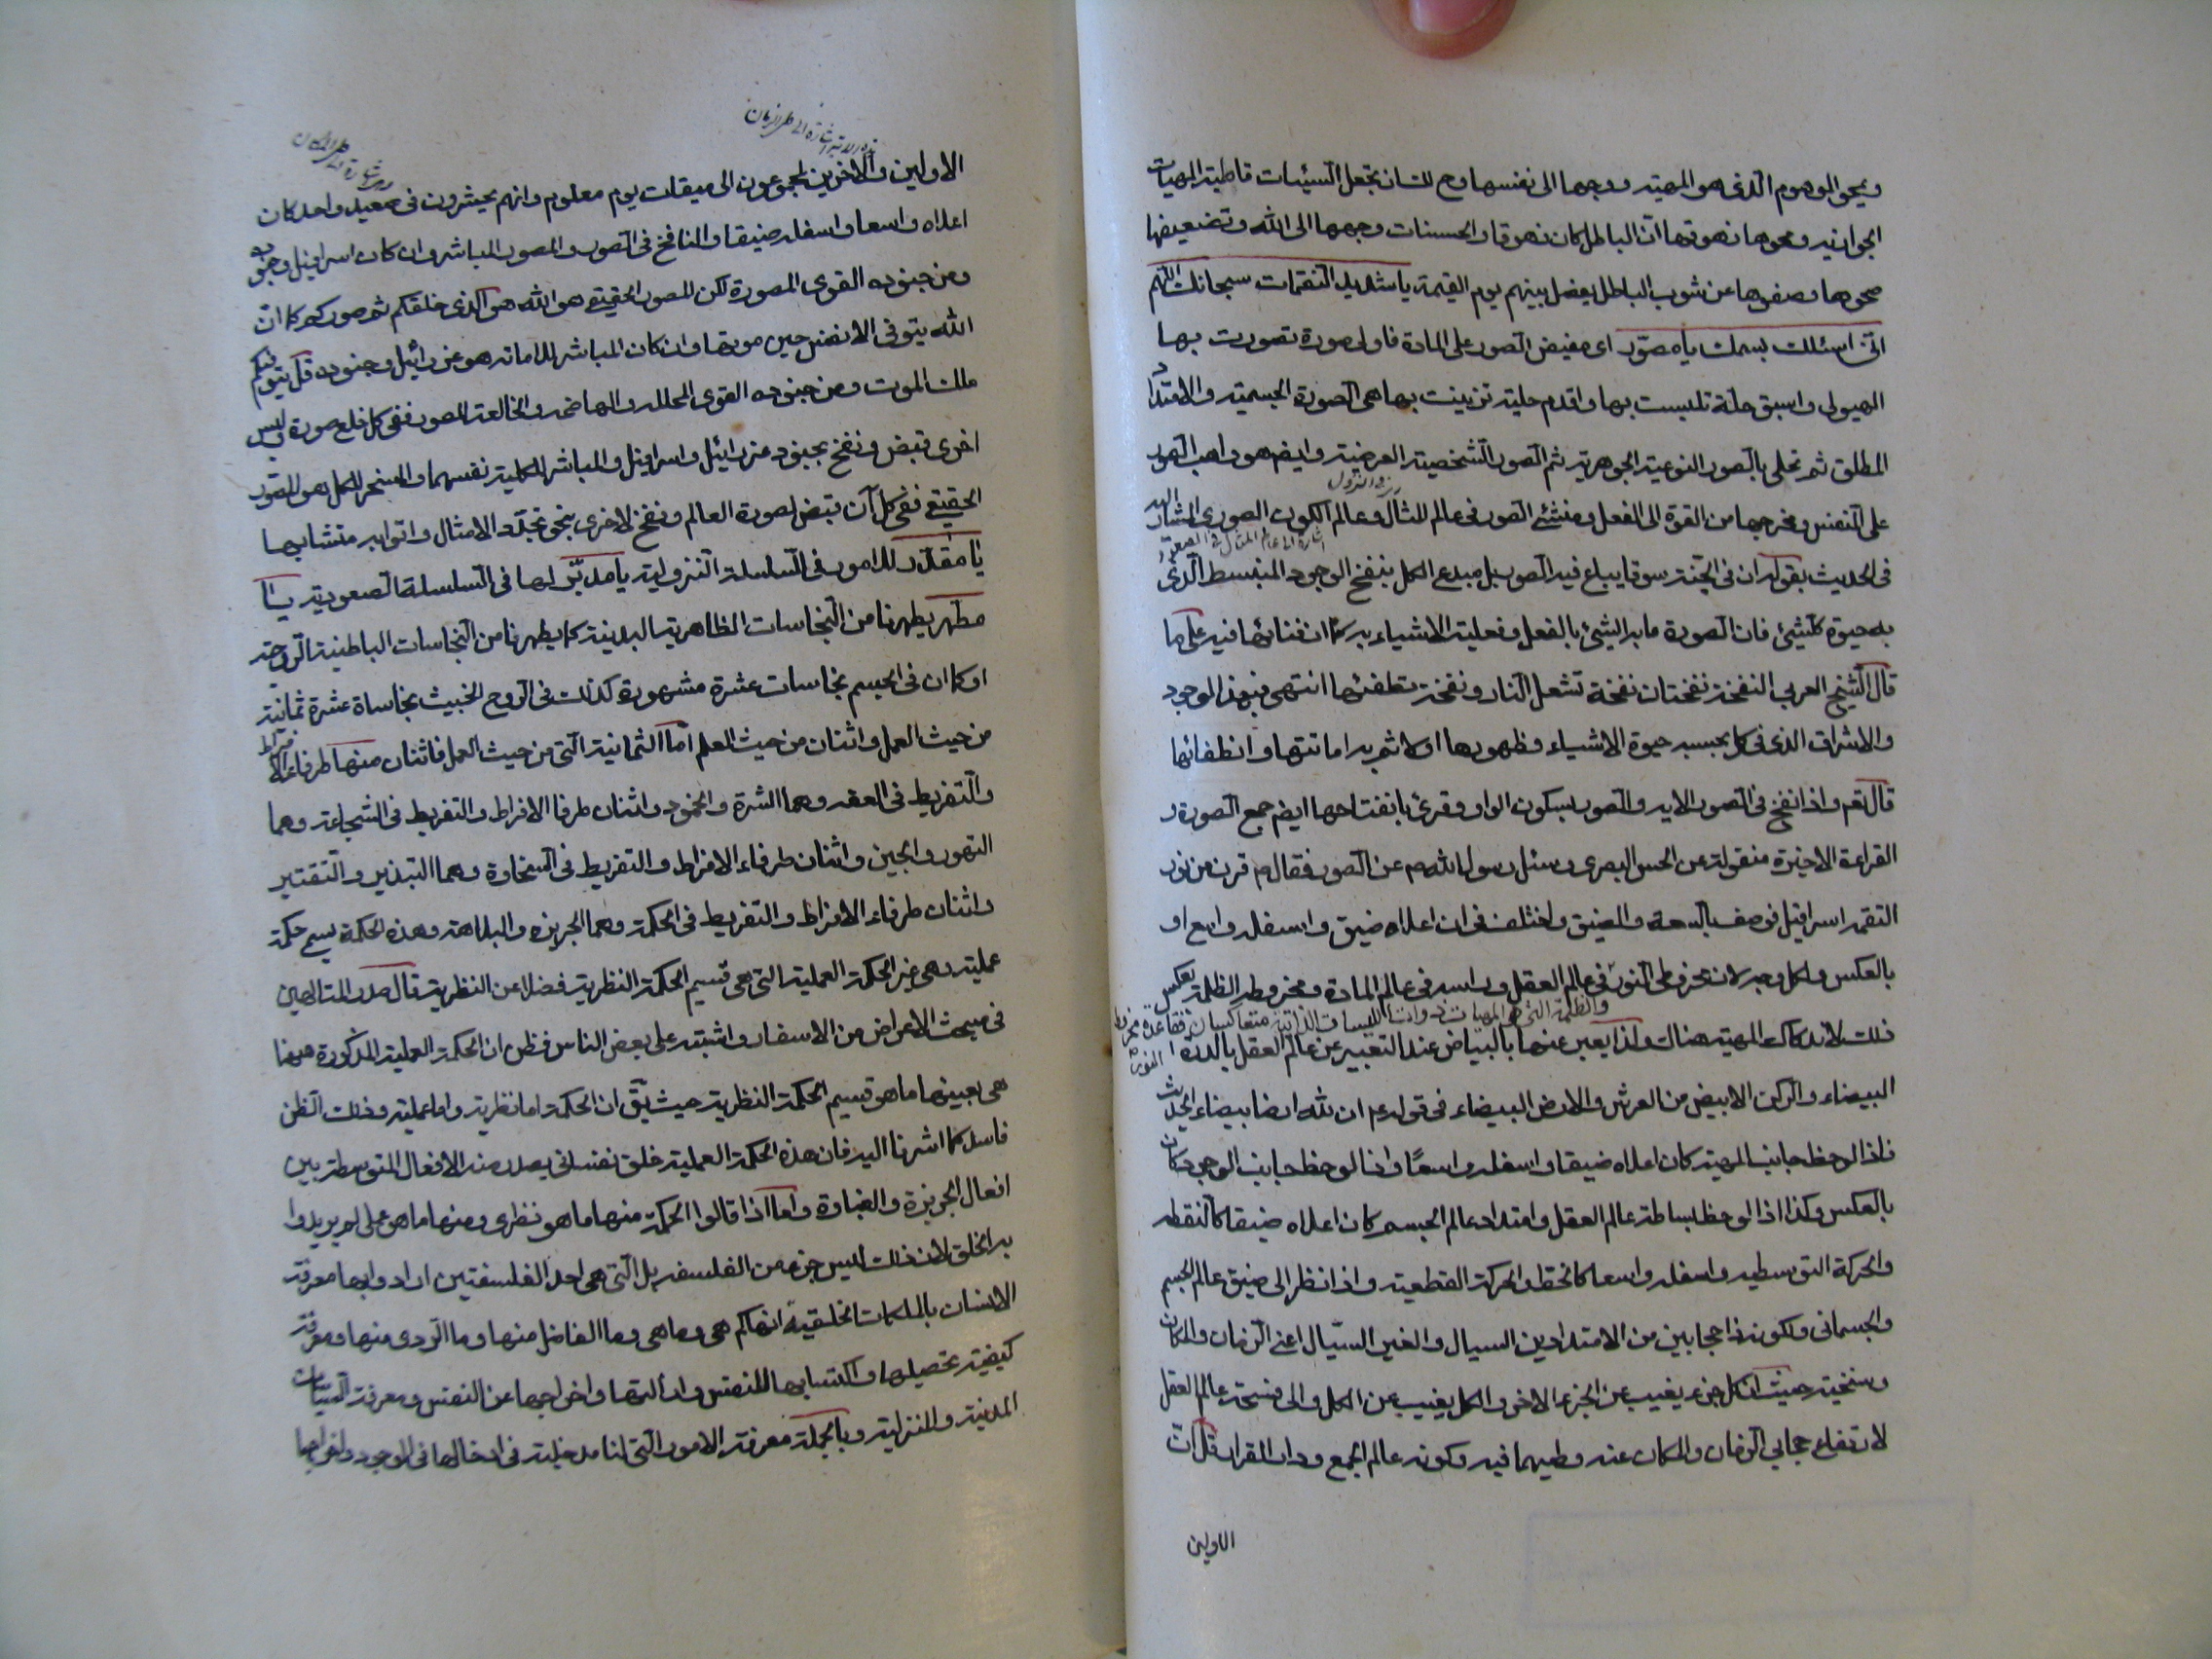 ويمحو الموهوم الذى هو المهية ووجهها الى نفسها وح للسان تجعل السيئات قاطبة المهيات
الجوازية ومحوها زهوقها ان الباطل كان زهوقا والحسنات وجهها الى الله وتضعيفها
صحوها وصفوها عن شوب الباطل يفصل بينهم يوم القيمة يا شديد النقمات سبحانك اللهم
انى اسئلك بسمك يا مصور اى مفيض الصور على المادة فاولى صورة تصورت بها
الهيولى واسبق حلة تلبست بها واقدم حلية تزينت بها هى الصورة الجسمية والامتداد
المطلق ثم تحلى بالصور النوعية الجوهرية ثم الصور الشخصية العرضية وايضا هو واهب الصور
على النفس ومخرجها من القوة الى الفعل ومنشئ الصور فى عالم المثال وعالم الكون الصورى المشار اليه
فى الحديث بقوله ان فى الجنة سوقا يباع فيه الصور بل مبدع الكل بنفخ الوجود المنبسط الذى
به حيوة كلشئ فان الصورة ما به الشئ بالفعل وفعلية الاشياء به كما ان فنائها فيه على ما
قال الشيخ العربى النفخة نفختان نفخة تشعل النار ونفخة تطفئها انتهى فبهذا الوجود
والاشراق الذى فى كل بحسبه حيوة الاشياء وظهورها اولا ثم به اماتتها وانطفائها
قال تعم واذا نفخ فى الصور الاية والصور بسكون الواو وقرئ بانفتاحها ايضا جمع الصورة و
القراءة الاخيرة منقولة عن الحسن البصرى وسئل رسول الله ص عن الصور فقال ص قرن من نور
التقمه اسرافيل فوصف بالسعة والضيق واختلف فى ان اعلاه ضيق واسفله واسع او
بالعكس ولكل وجه لان مخروطى النور فى عالم العقل وراسه فى عالم المادة ومخروط الظلمة بعكس
ذلك لاندكاك المهية هناك ولذا يعبر عنها بالبياض عند التعبير عن عالم العقل بالدرة
البيضاء والركن الابيض من العرش والارض البيضاء فى قوله ع ان لله ارضا بيضاء الحديث
فاذا لوحظ جانب المهية كان اعلاه ضيقا واسفله واسعا واذا لوحظ جانب الوجود كان
بالعكس وكذا اذا لوحظ بساطة عالم العقل وامتداد عالم الجسم كان اعلاه ضيقا كالنقطة
والحركة التوسطية واسفله واسعا كالخط والحركة القطعية واذا نظر الى ضيق عالم الجسم
والجسمانى وكونه ذا حجابين من الامتدادين السيال والغير السيال اعنى الزمان والمكان
وسنخيته حيث ان كل جزء يغيب عن الجزء الاخر والكل يغيب عن الكل والى فسحة عالم العقل
لارتفاع حجابى الزمان والمكان عنه وطيهما فيه وكونه عالم الجمع ودار القرار قل ان
الاولين
الاولين والاخرين لمجموعون الى ميقات يوم معلوم وانهم يحشرون فى صعيد واحد كان
اعلاه واسعا واسفله ضيقا والنافخ فى الصور والمصور المباشر وان كان اسرافيل وجنوده
ومن جنوده القوى المصورة لكن المصور الحقيقى هو الله هو الذى خلقكم ثم صوركم كما ان
الله يتوفى الانفس حين موتها وان كان المباشر للاماتة هو عزرائيل وجنوده قل يتوفيكم
ملك الموت ومن جنوده القوى المحللة والهاضمة والخالعة للصور ففى كل خلع صورة ولبس
اخرى قبض ونفخ بجنود عزرائيل واسرافيل والمباشر للكلية نفسهما والمسخر للكل هو المصور
الحقيقى ففى كل آن قبض لصورة العالم ونفخ لاخرى بنحو تجدد الامثال واتوا به متشابها
يا مقدر للامور فى السلسلة النزولية يا مدبر لها فى السلسلة الصعودية يا
مطهر يطهرنا من النجاسات الظاهرية البدنية كما يطهرنا من النجاسات الباطنية الروحية
او كما ان فى الجسم نجاسات عشرة مشهورة كذلك فى الروح الخبيث نجاسات عشرة ثمانية
من حيث العمل واثنان من حيث العلم اما الثمانية التى من حيث العمل فاثنان منها طرفاء الافراط
والتفريط فى العفة وهما الشرة والخمود واثنان طرفا الافراط والتفريط فى الشجاعة وهما
التهور والجبن واثنان طرفاء الافراط والتفريط فى السخاوة وهما التبذير والتقتير
واثنان طرفاء الافراط والتفريط فى الحكمة وهما الجربزة والبلاهة وهذه الحكمة يسم حكمة
عملية وهى غير الحكمة العملية التى هى قسيم الحكمة النظرية فضلا عن النظرية قال صدر المتالهين
فى مبحث الاعراض من الاسفار واشتبه على بعض الناس فظن ان الحكمة العملية المذكورة ههنا
هى بعينها ما هو قسيم الحكمة النظرية حيث يق ان الحكمة اما نظرية واما عملية وذلك الظن
فاسد كما اشرنا اليه فان هذه الحكمة العملية خلق نفسانى يصدر منه الافعال المتوسطة بين
افعال الجربزة والغباوة واما اذا قالوا الحكمة منها ما هو نظرى ومنها ما هو عملى لم يريدوا
به الخلق لان ذلك ليس جزء من الفلسفة بل التى هى احد الفلسفتين ارادوا بها معرفة
الانسان بالملكات الخلقية انها كم هى وما هى وما الفاضل منها وما الردى منها ومعرفة
كيفية تحصيلها واكتسابها للنفس وازالتها واخراجها عن النفس ومعرفة السياسات
المدنية والمنزلية وبالجملة معرفة الامور التى لنا مدخلية فى ادخالها فى الوجود واخراجها